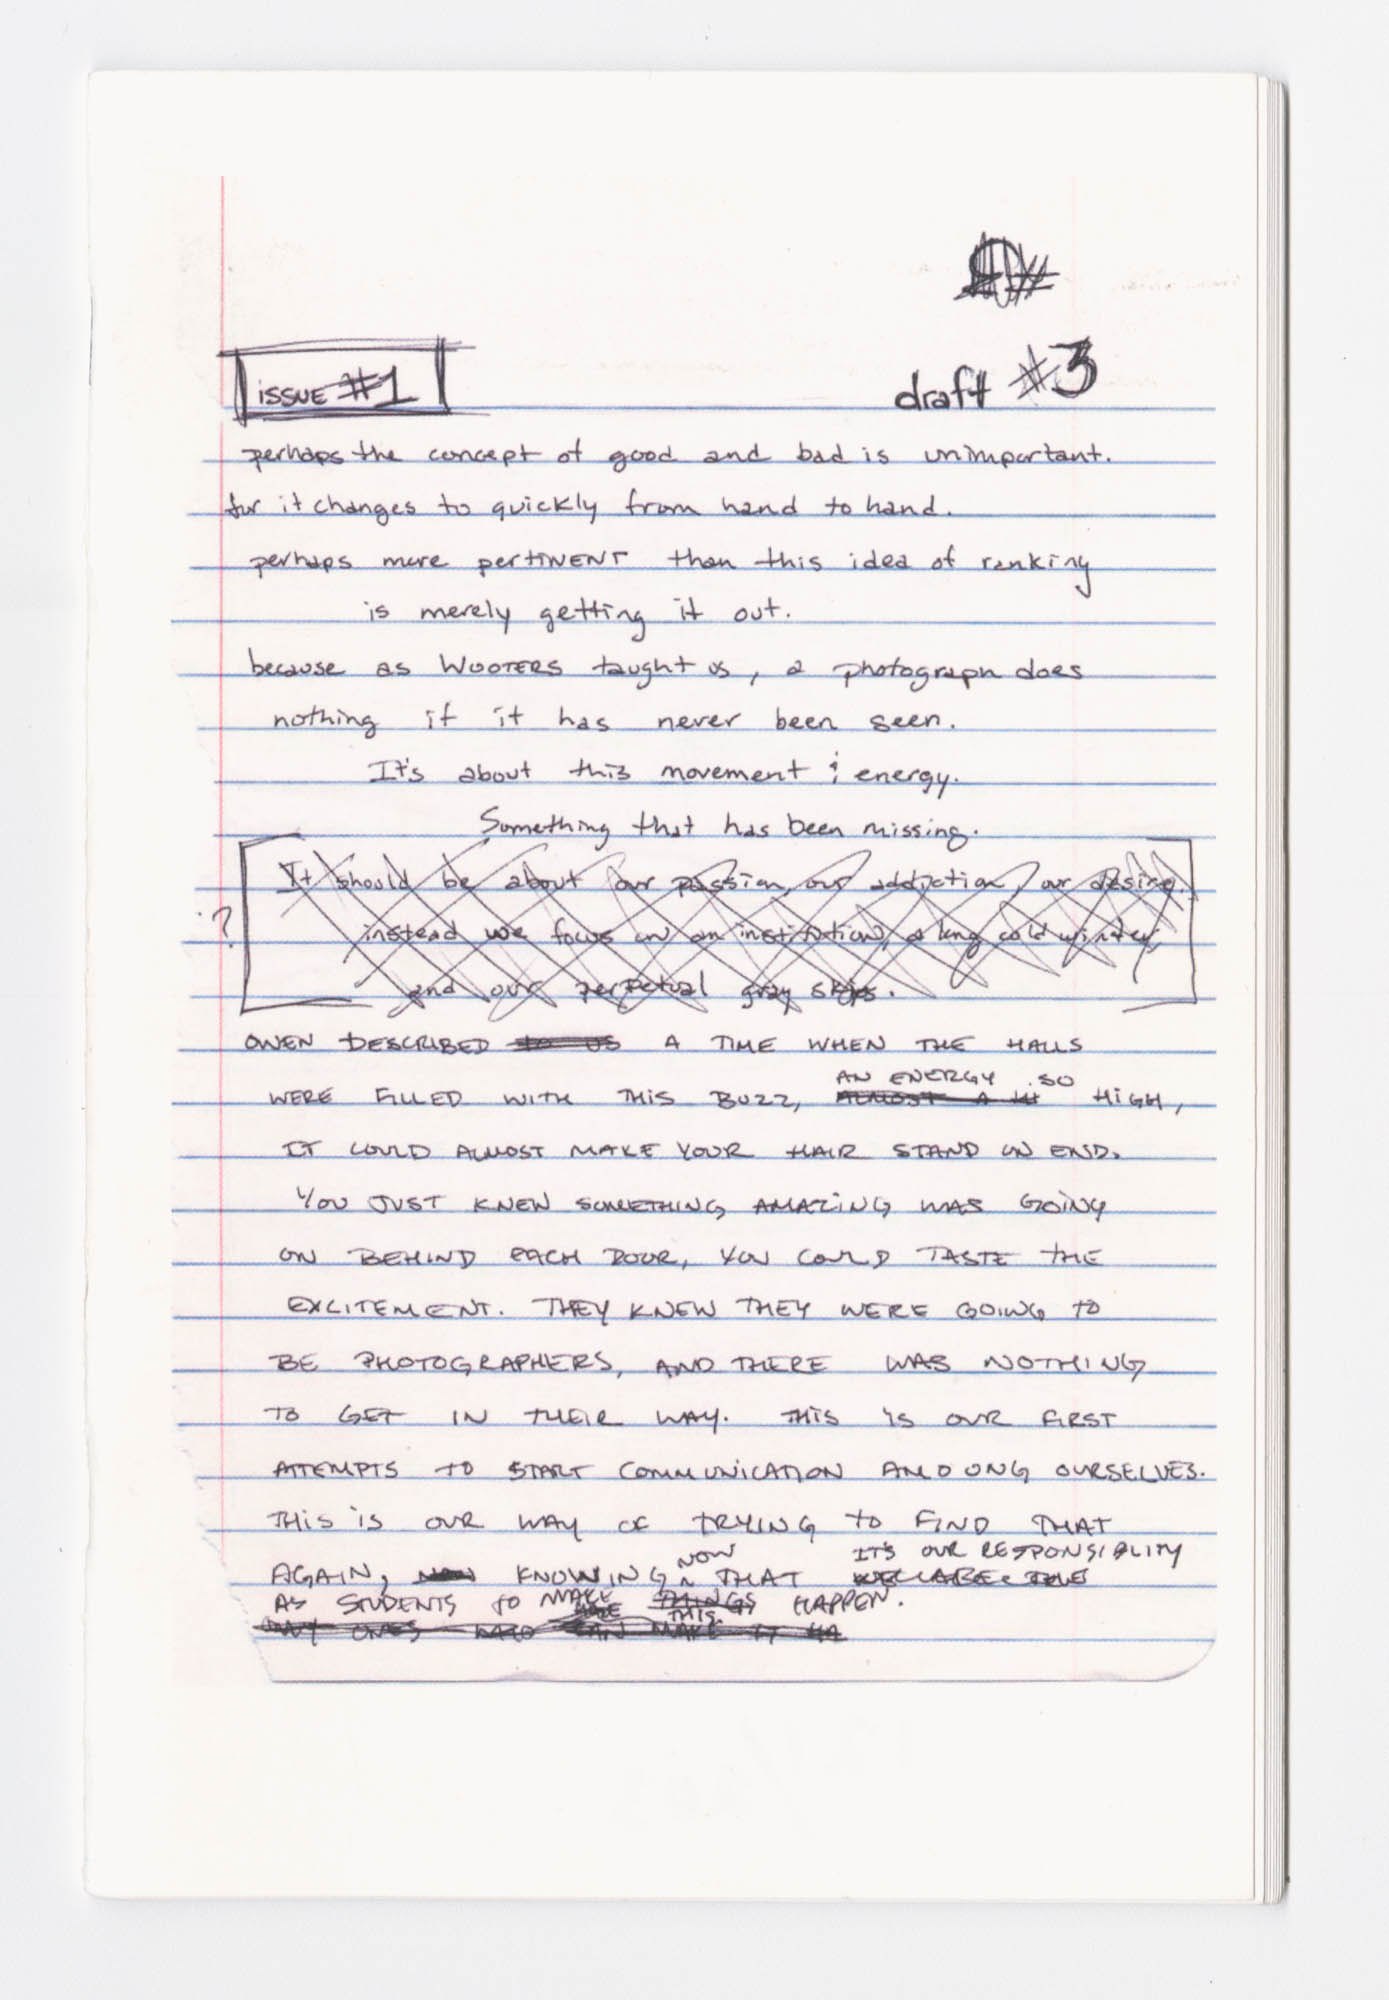 issue #1
draft #3
perhaps the concept of good and bad is unimportant.
for it changes to quickly from hand to hand.
perhaps more pertiNENT than this idea of ranking
is merely getting it out.
because as WOOTERS taught us, a photograph does
nothing if it has never been seen.
It's about this movement & energy.
Something that has been missing.
It should be about our passion, our addiction, our desire.
?
instead we focus on an institution, a long cold winter,
and our perpetual gray skies.
OWEN DESCRIBED to us A TIME WHEN THE HALLS
AN ENERGY SO
WERE FILLED WITH THIS BUZZ, ALMOST A HIGH,
IT COULD ALMOST MAKE YOUR HAIR STAND ON END.
YOU JUST KNEW SOMETHING AMAZING WAS GOING
ON BEHIND EACH DOOR, YOU COULD TASTE THE
EXCITEMENT. THEY KNEW THEY WERE GOING TO
BE PHOTOGRAPHERS, AND THERE WAS NOTHING
TO GET IN THEIR WAY. THIS IS OUR FIRST
ATTEMPTS TO START COMMUNICATION AMOONG OURSELVES.
THIS IS OUR WAY OF TRYING TO FIND THAT
NOW IT'S OUR RESPONSIBILITY
AGAIN, KNOWING THAT WE ARE THE
AS STUDENTS TO MAKE THINGS HAPPEN.
THIS
ONES WHO CAN MAKE IT HA